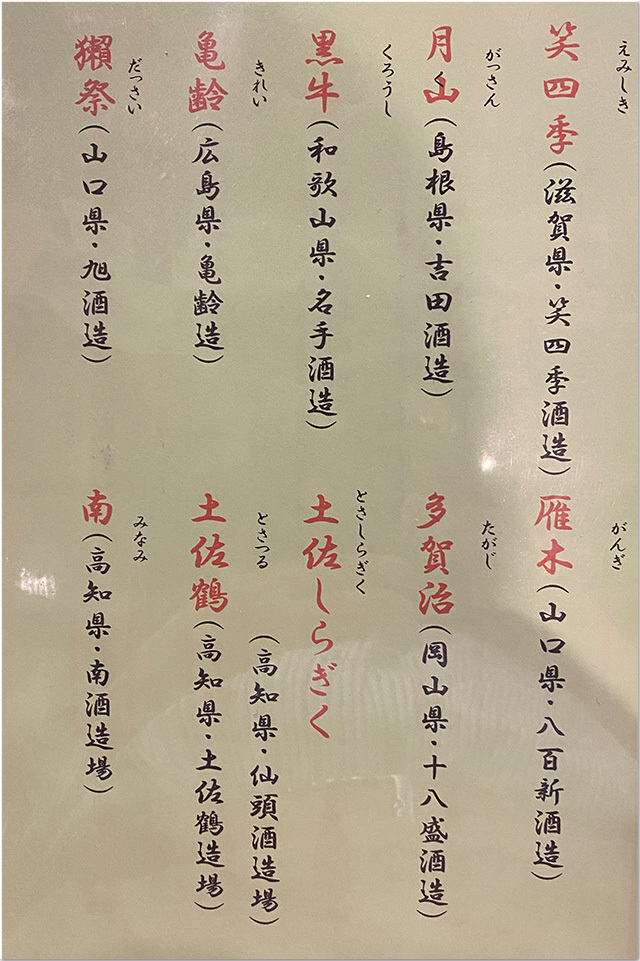 えみしき
笑四季（滋賀県・笑四季酒造）
がっさん
月山（島根県・吉田酒造）
く
くろうし
黒牛（和歌山県・名手酒造）
きれい
亀齢（広島県・亀齢造）
だっさい
獺祭（山口県・旭酒造）
がんぎ
雁木（山口県・八百新酒造）
たがじ
多賀治（岡山県・十八盛酒造）
とさしらぎく
土佐しらぎく
（高知県・仙頭酒造場）
とさつる
土佐鶴（高知県・土佐鶴造場）
みなみ
南（高知県・南酒造場）